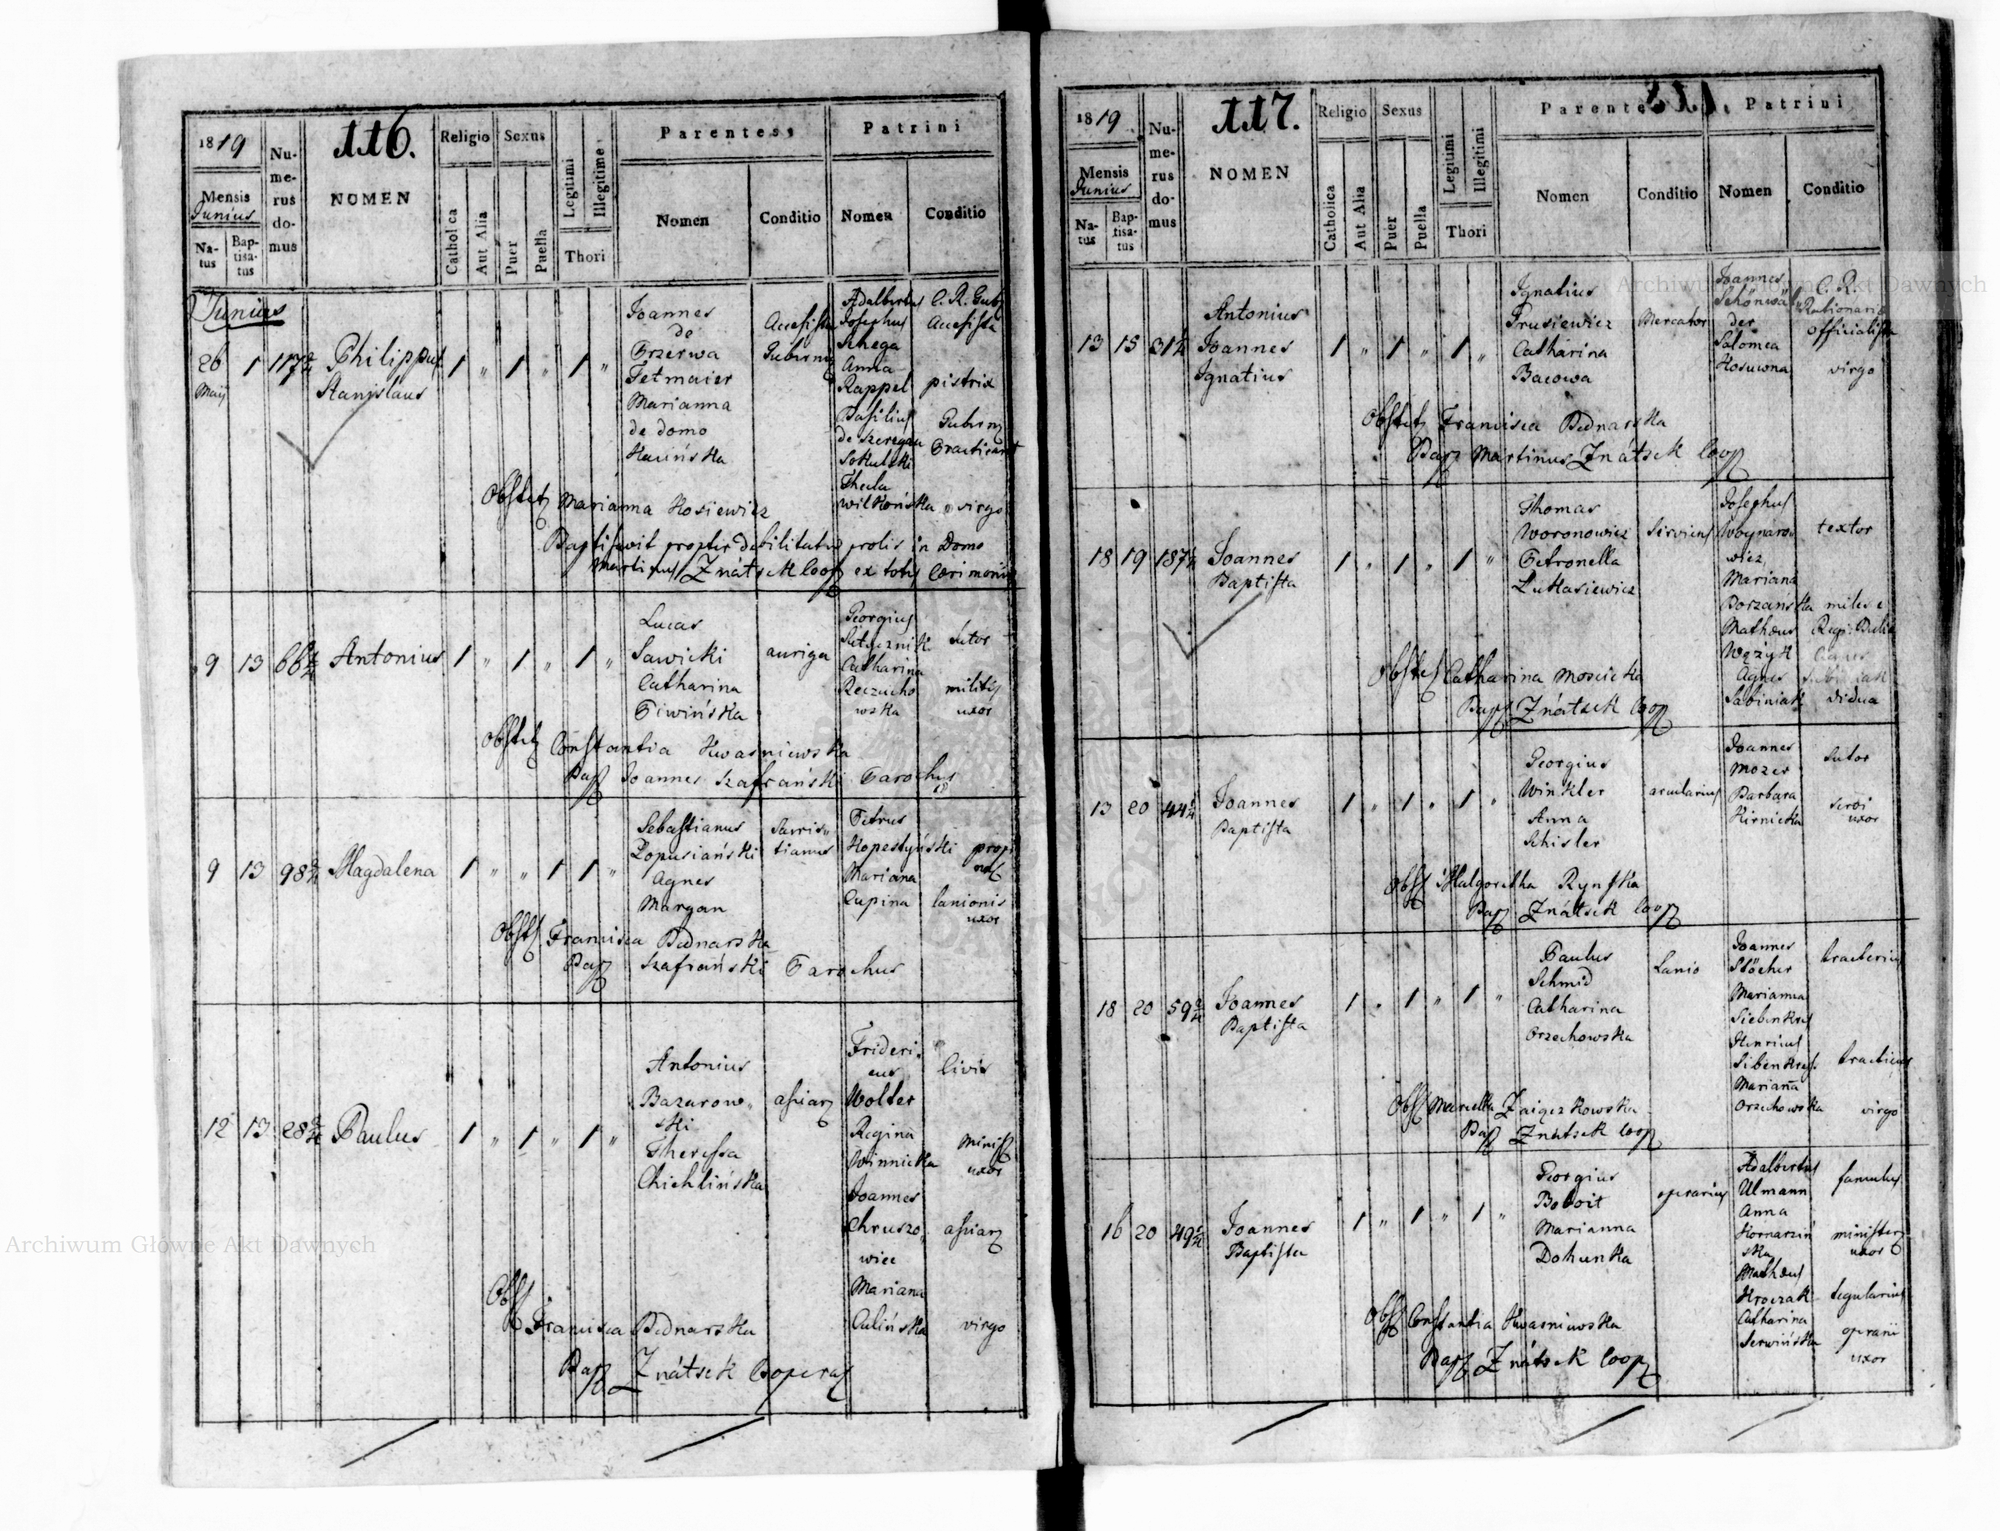 1819
Nu-
me-
rus
do-
mus
116.
NOMEN
Religio
Sexus
Parentes
Patrini
Mensis
Junius
Na-
tus
Bap-
tisa-
tus
Catholica
Aut Alia
Puer
Puella
Legitimi
Illegitime
Thori
Nomen
Conditio
Nomen
Conditio
Junius
26
Maij
1
117
Philippus
Stanislaus
1 " 1 " 1 "
Joannes
de
Przerwa
Tetmaier
Marianna
de domo
Accessista
Guberny
Adalbertus
Josephus
Schega
Anna
Rappel
Basilius
Sokulski
Thecla
Wilkońska
C. R. Gub
Accessista
pistrix
Guberny
Practicant
virgo
Obstetz Marianna Kosiewicz
Baptisavit propter debilitatem prolis in Domo
Martinus Znátsek Coop ex totis Cerimoniis
9 13 66
Antonius
1 " 1 " 1 "
Lucas
Sawicki
Catharina
Piwińska
auriga
Georgius
Catharina
Reczucho
wska
sutor
militis
uxor
Obstetz Constantia Kwasniewska
Bapt Joannes Szafrański Parochus
9 13 98
Magdalena
1 " " 1 1 "
Sebastianus
Łopusiański
Agnes
Margan
Petrus
Kopestyński
Mariana
Cupina
lanionis
uxor
Obst Francisca Bednarska
Bap Szafrański Parochus
12 13 28
Paulus
1 " 1 " 1 "
Antonius
Bazarow-
ski
Theressa
Chichlińska
Frideri-
cus
Wolter
Regina
Winnicka
Joannes
Chruszo-
wiec
Mariana
Culińska
Civis
uxor
virgo
Obst
Francisca Bednarska
Bap Znátsek Cooperas
1819
Nu-
me-
rus
do-
mus
117.
NOMEN
Religio
Sexus
Parentes
Patrini
Mensis
Junius
Na-
tus
Bap-
tisa-
tus
Catholica
Aut Alia
Puer
Puella
Legitimi
Illegitimi
Thori
Nomen
Conditio
Nomen
Conditio
13 15 31
Antonius
Joannes
Ignatius
1 " 1 " 1 "
Ignatius
Prusiewicz
Catharina
Bacowa
Mercator
Joannes
Schönwäl
der
Salomea
Kosuwna
C. R.
Rationario
Officialista
virgo
Obstetz Francisca Bednarska
Bap Martinus Znátsek Coop
18 19 187
Joannes
Baptista
1 " 1 " 1 "
Thomas
Woronowicz
Petronella
Lukasiewicz
Serviens
Josephus
Woynaro
wicz
Mariana
Borzańska
Matheus
Węzyk
Agnes
Sabiniak
textor
vidua
Obstet Catharina Moscicka
Bap Znátsek Coop
13 20 44
Joannes
Baptista
1 " 1 " 1 "
Georgius
Winkler
Anna
Schisler
arcularius
Joannes
Mozer
Barbara
Kirnicka
sutor
servi
uxor
Obst Malgoretha Rynska
Bap Znátsek Coop
18 20 59
Joannes
Baptista
1 " 1 " 1 "
Paulus
Schmid
Catharina
Orzechowska
Lanio
Joannes
Stöcher
Marianna
Henricus
Mariana
Orzechowska
virgo
Obst Marcella Zaiączkowska
Bap Znátsek Coop
16 20 49
Joannes
Baptista
1 " 1 " 1 "
Georgius
Marianna
Dohunka
oprarius
Adalbertus
Ulmann
Anna
Kornarzin
ska
Matheus
Kroczak
Catharina
Serwińska
famulus
uxor
tegularius
oprarii
uxor
Obst Constantia Kwasniewska
Bap Znátsek Coop
Archiwum Główne Akt Dawnych
Archiwum Główne Akt Dawnych